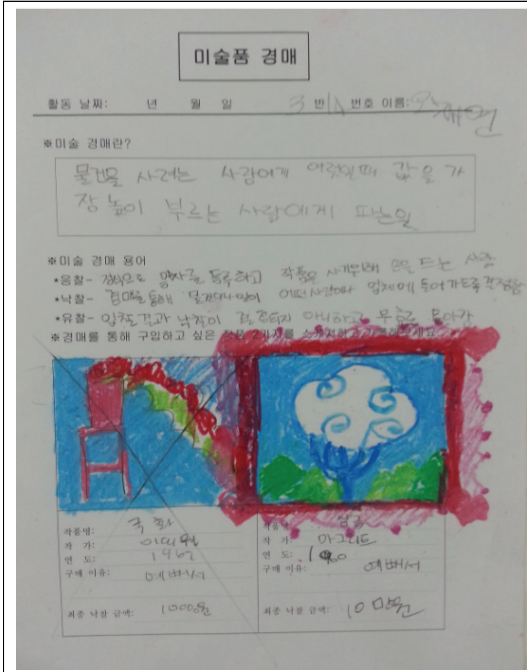 미술품 경매
활동 날짜: 년 월 일 3 반 번호 이름:
※미술 경매란?
물건을 사려는 사람이 여럿일때 값을 가
장 높이 부르는 사람에게 파는일
※미술 경매 용어
*응찰- 응찰자를 등록하고 작품을 사기위해 드는
*낙찰- 경매를 통해 물건이나 일이 어떤사람이나 업체에 돌아가도록 결정됨
*유찰- 입찰결과 낙찰이 결정되지 아니하고 무효로 돌아감
※경매를 통해 구입하고 싶은 작품 2가지를
작품명: 국화
작 가:
연 도: 1962
구매 이유: 예뻐서
최종 낙찰 금액: 1000원
작품명:
작 가: 마그리트
연 도:
구매 이유: 예뻐서
최종 낙찰 금액: 10만원